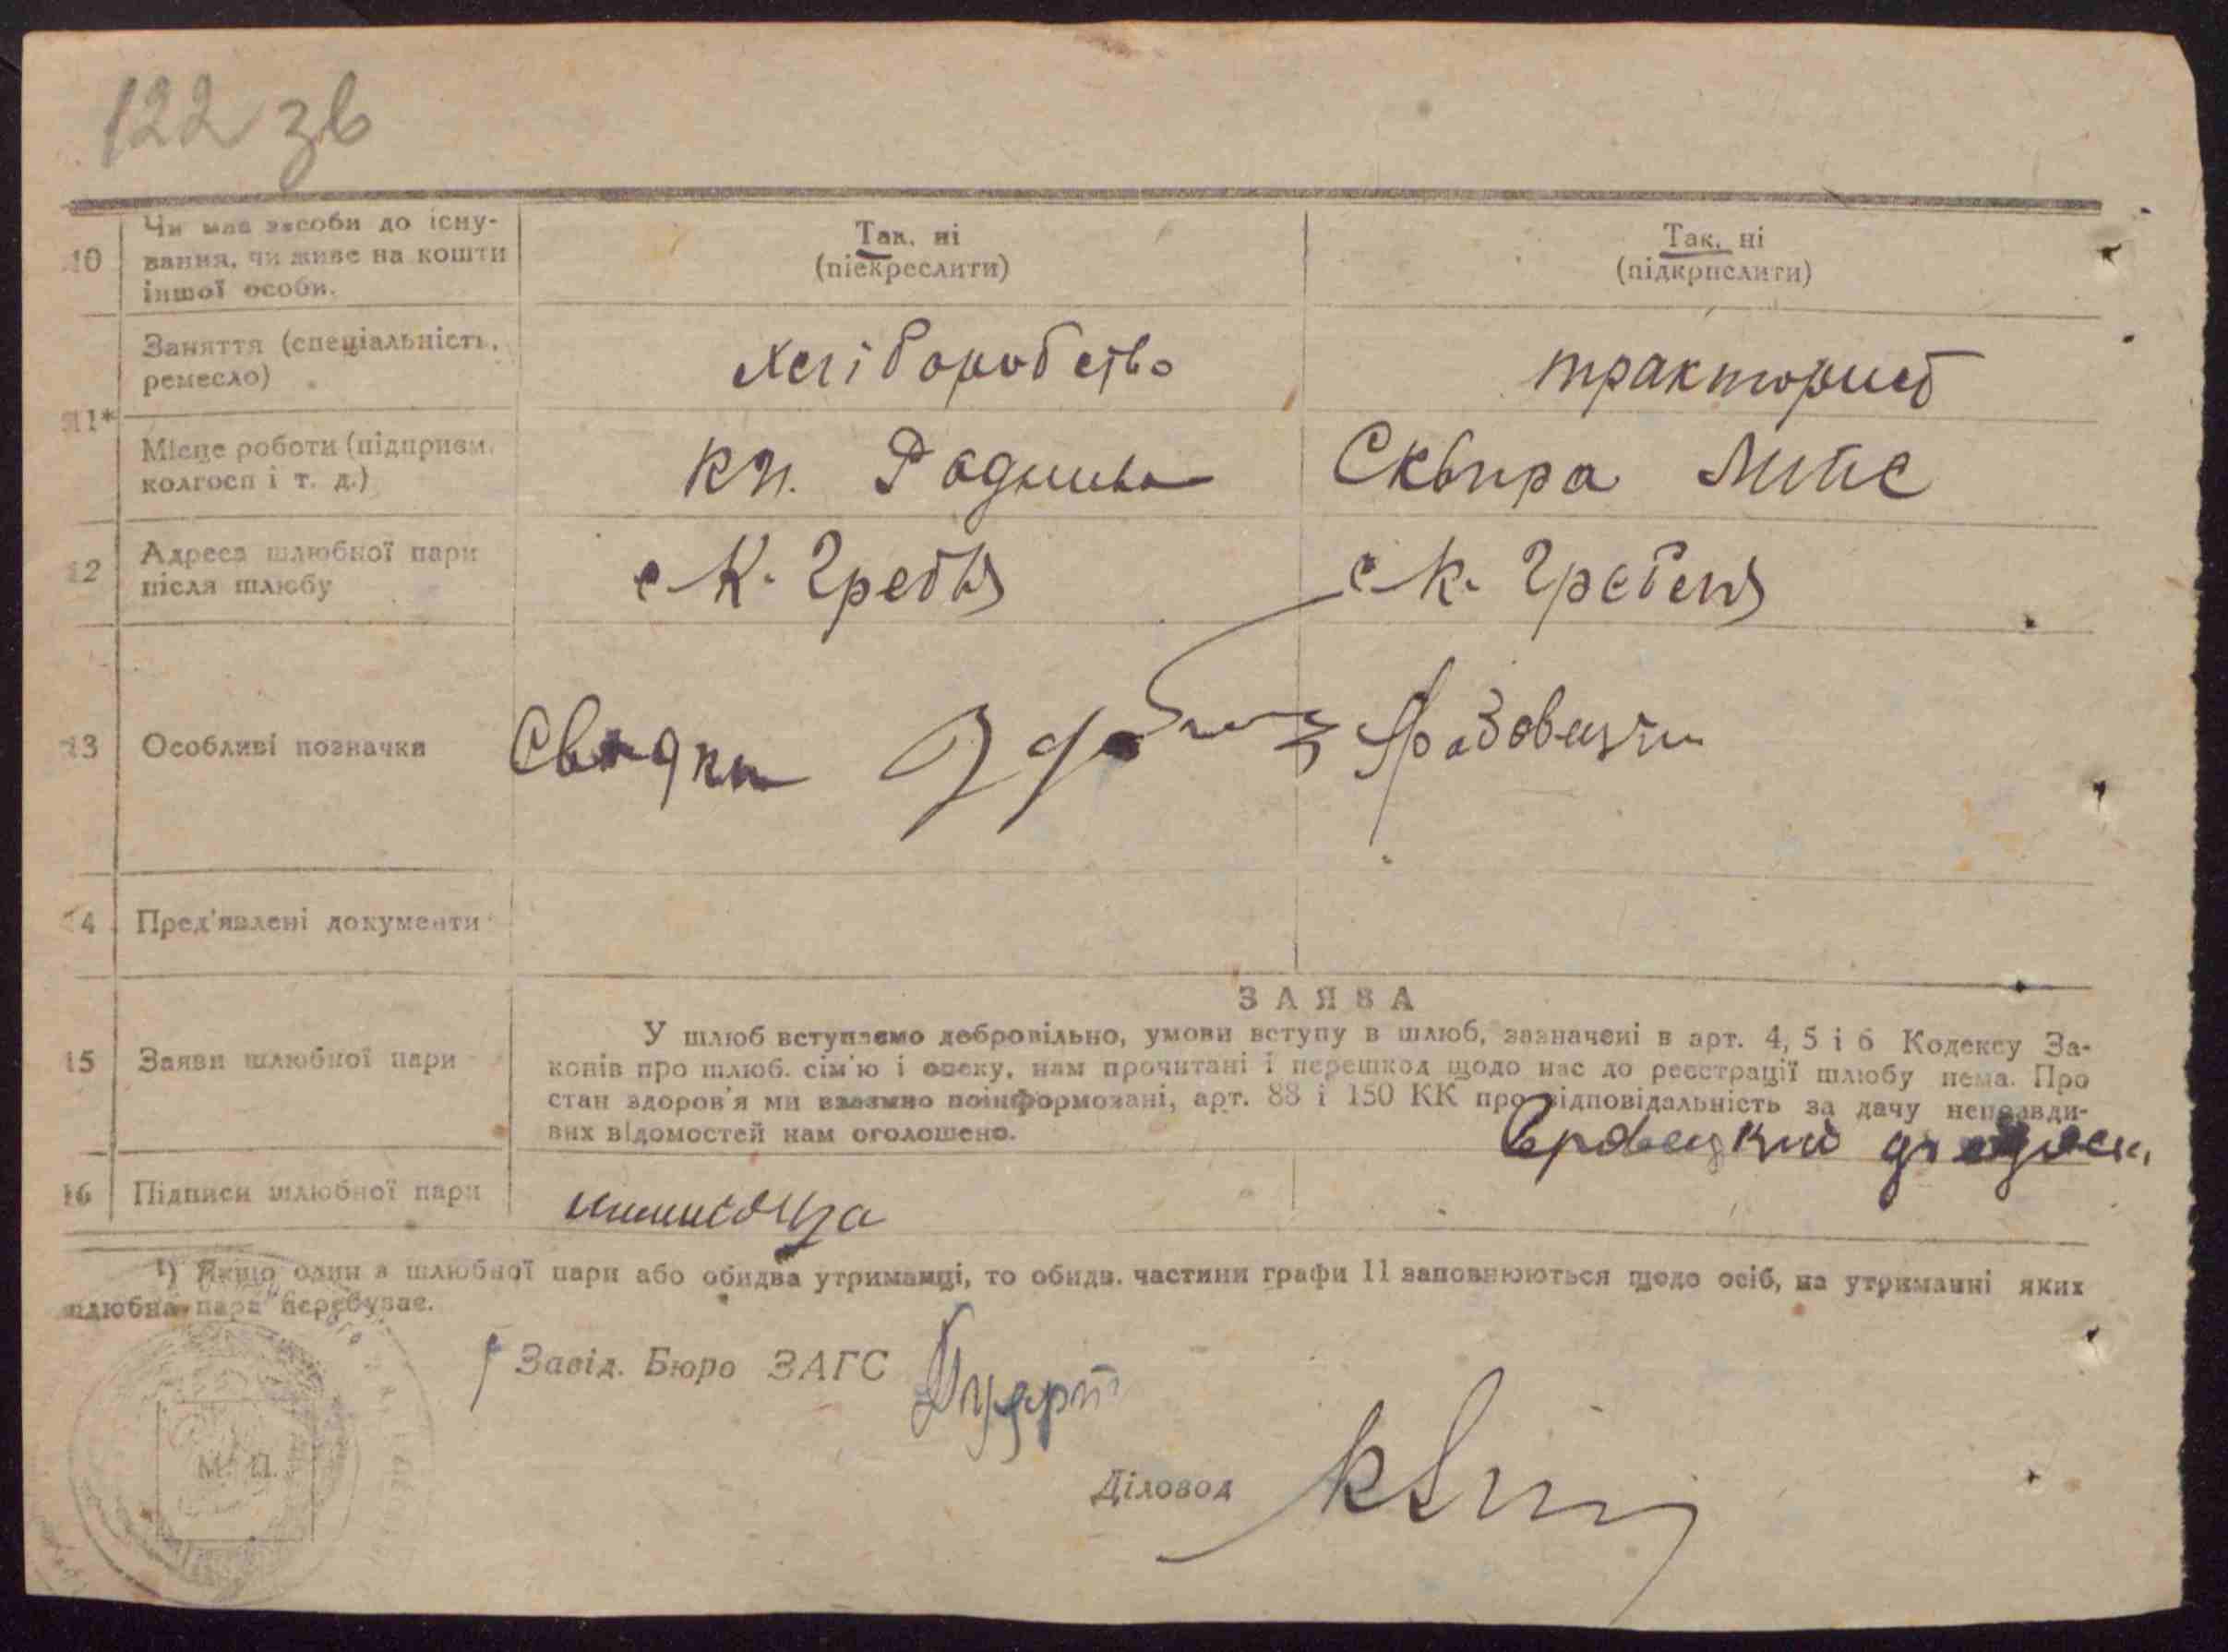 122 зв
10
Чи має засоби до існу-
вання, чи живе на кошти
іншої особи.
Так, ні
(піекреслити)
Так, ні
(підкрпслити)
11*
Заняття (спеціальність,
ремесло)
хліборобство
тракторист
Місце роботи (підприєм.
колгосп і т. д.)
Сквира
12
Адреса шлюбної пари
після шлюбу
с К. Гребля
с К. Гребеля
13
Особливі позначки
Свидки
14
Пред'явлені документи
15
Заяви шлюбної пари
ЗАЯВА
У шлюб вступаємо добровільно, умови вступу в шлюб, зазначені в арт. 4, 5 і 6 Кодексу За-
конів про шлюб. сім'ю і опеку, нам прочитані і перешкод щодо нас до реєстрації шлюбу нема. Про
стан здоров'я ми взаємно поінформовані, арт. 88 і 150 КК про відповідальність за дачу неправди-
вих відомостей нам оголошено.
16
Підписи шлюбної пари
¹) Якщо один з шлюбної пари або обидва утриманці, то обидв. частини графи 11 заповнюються щодо осіб, на утриманні яких
шлюбна пара перебуває.
Завід. Бюро ЗАГС
М. П.
Діловод